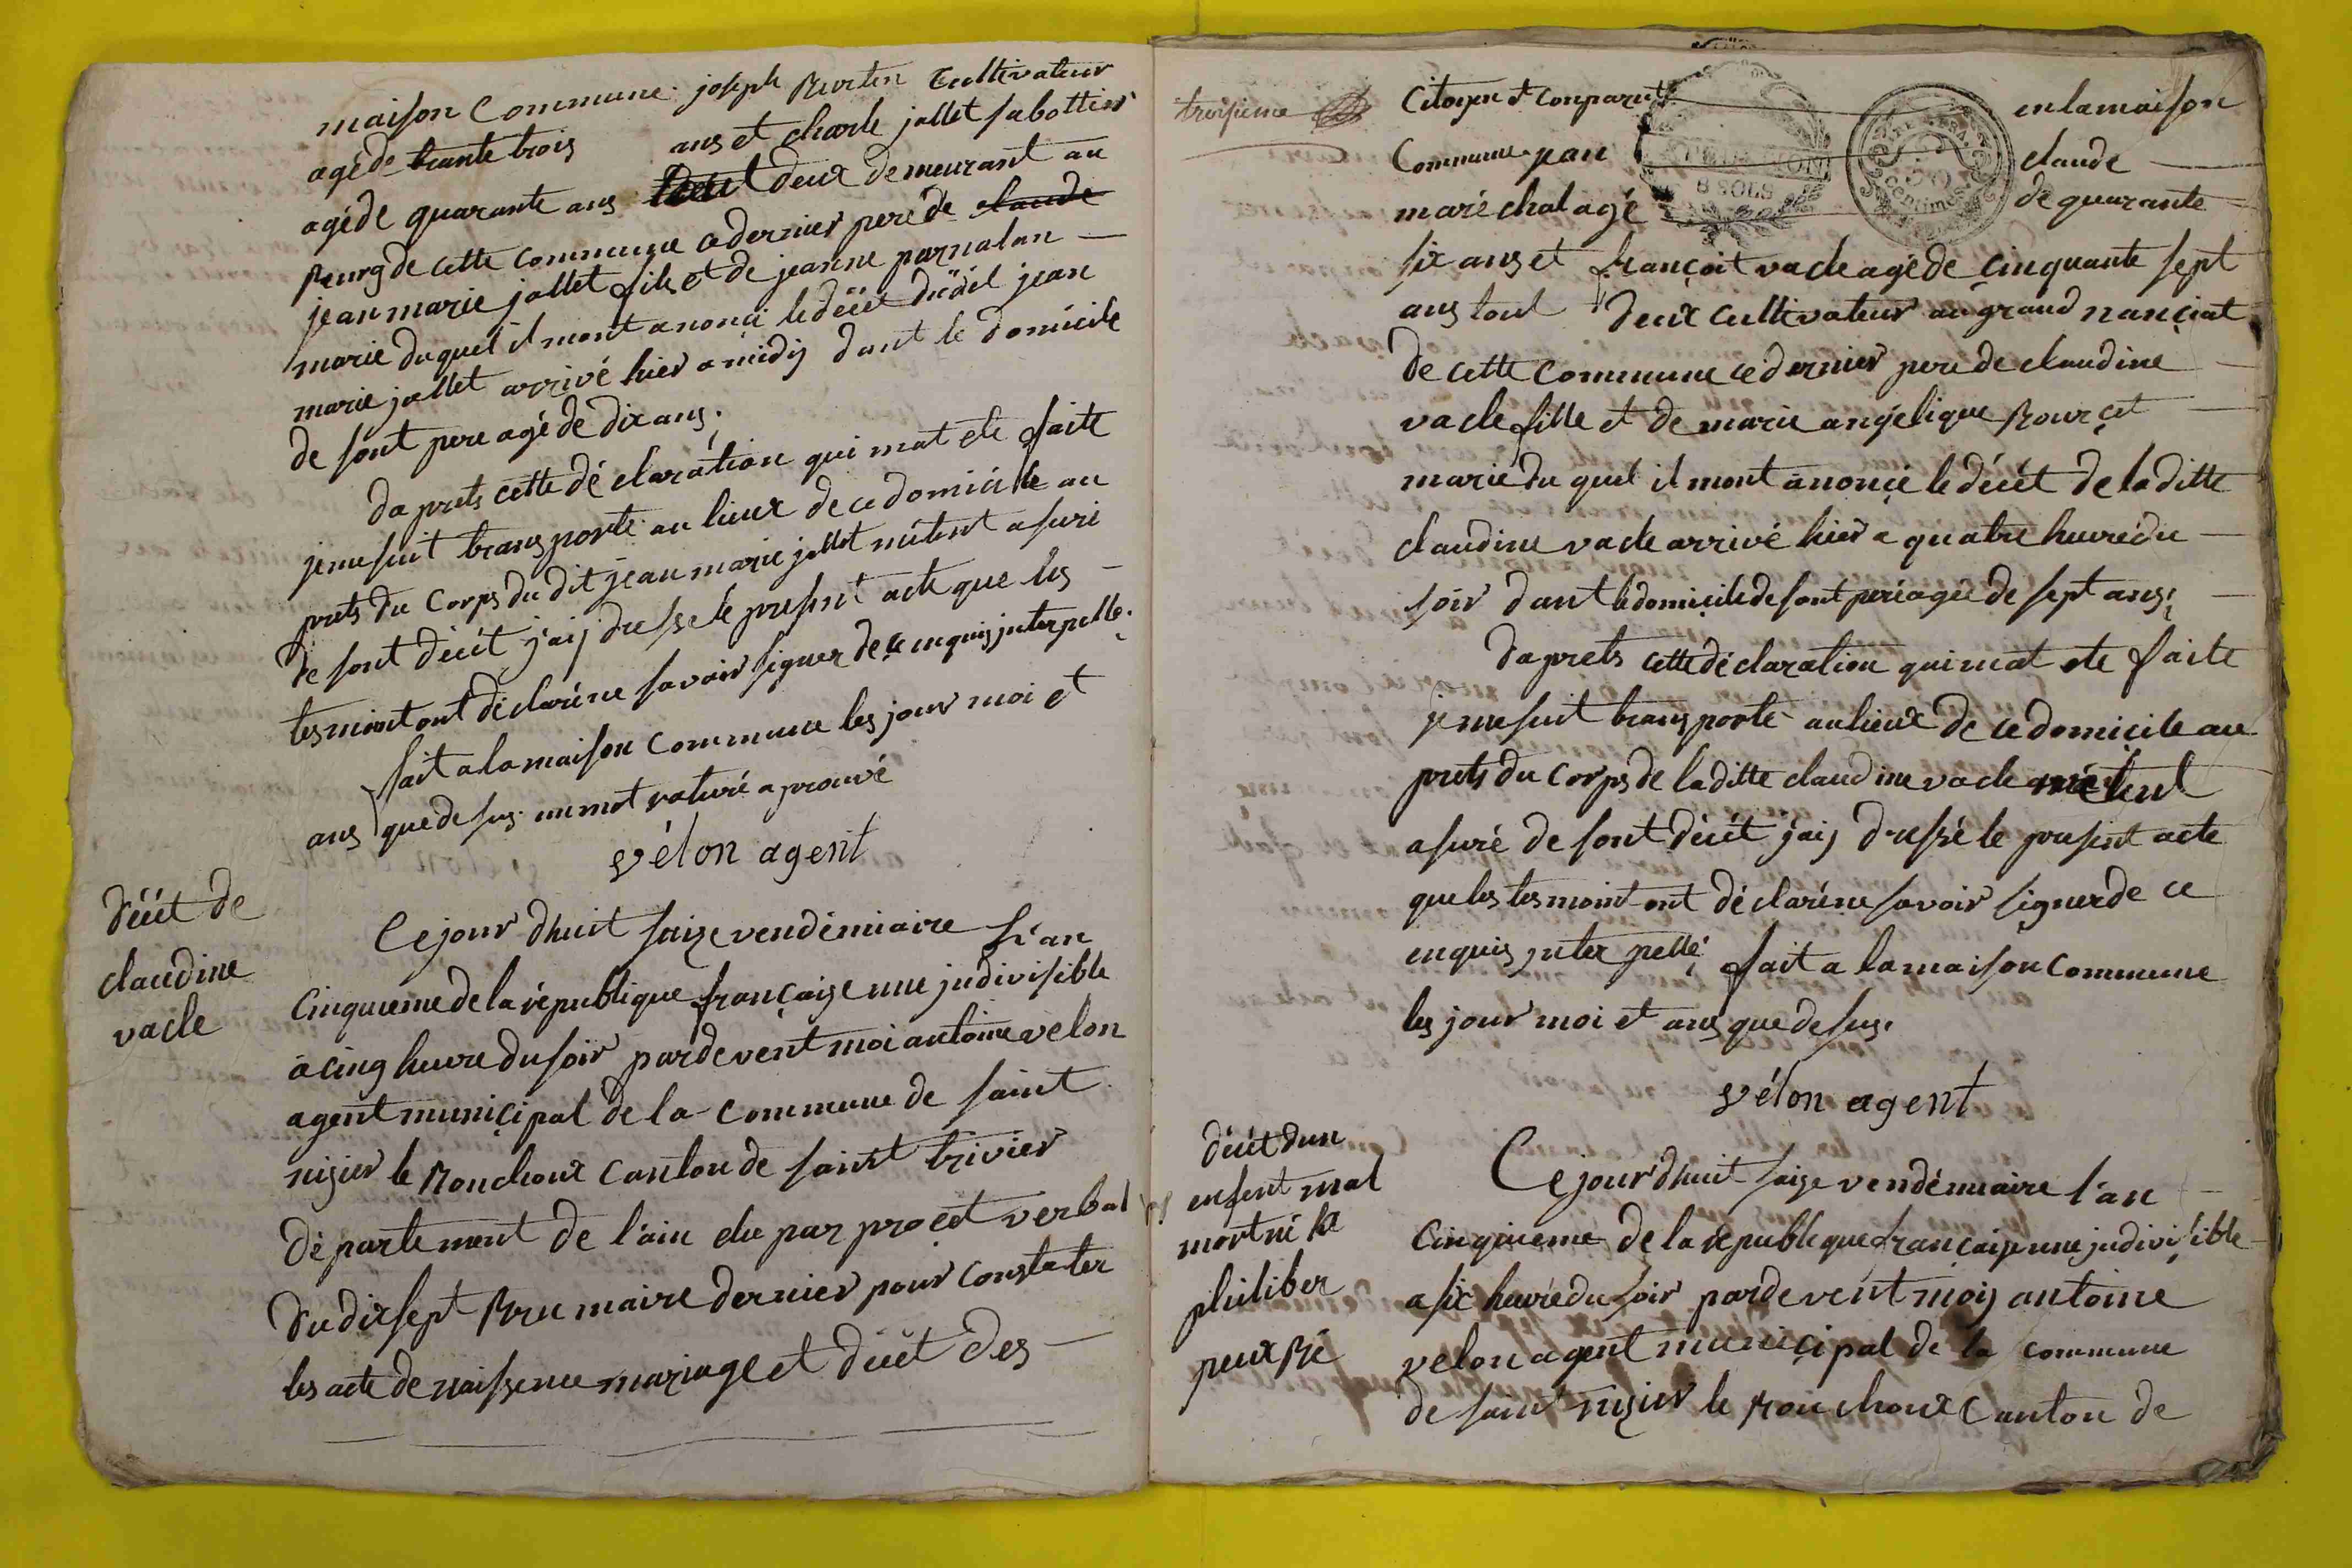 maison Commune. joseph Burtin Cultivateur
agé de trante trois ans et charle jallet sabottier
agé de quarante ans tout deux demeurant au
Bourg de cette commune ce dernier pere de claude
jean marie jallet fils et de jeanne parnalon
marie duquel il mont anoncé le décét dudit jean
marie jallet arrivé hier a midij dont le domicile
de sont pere agé de dix ans.
da prets cette déclaration qui mat ete faite
je me suit transporté au lieux de ce domicile au
prets du Corps du dit jean marie jallet métent asuré
de sont décét jaij dressé le present acte que les
tesmoint ont déclaré ne savoir signer de ce enquis jnterpellé.
fait a la maison commune les jour moi et
ans que desus. un mot raturé aprouvé
vélon agent
Décét de
claudine
vacle
Ce jour dhuit saize vendémiaire l'an
Cinquieme de la république française une jndivisible
a cinq heure du soir pardevent moi antoine velon
agent municipal de la commune de saint
nizier le Bouchoux canton de saint trivier
département de l'ain elu par procét verbal
du dix sept Brumaire dernier pour constater
les acte de naissence mariage et décét des
troisieme
Citoyen et Conparut en la maison
Commune jean claude
maréchal agé de quarante
six ans et françoit vacle agé de cinquante sept
ans tout deux cultivateur au grand nançiat
de cette commune ce dernier pere de claudine
vacle fille et de marie angélique Bourçet
marié du quel il mont anoncé le décét de la ditte
claudine vacle arrivé hier a quatre heure du
soir dant le domicile de sont peré agée de sept ans;
da prets cette déclaration qui mat ete faite
je me suit transporté au lieux de ce domicile au
prets du Corps de la ditte claudine vacle métent
asuré de sont décét jaij dressé le present acte
que les tesmoint ont déclaré ne savoir signer de ce
enquis jnter pellé. fait a la maison commune
les jour moi et ans que desus.
vélon agent
décét dun
enfent mal
mort né a
philiber
peuxBé
Ce jour dhuit saize vendémiaire l'an
Cinquieme de la republique française une jndivisible
a six heure du soir pardevént moij antoine
velon agent municipal de la commune
de saint nizier le Bouchoux Canton de